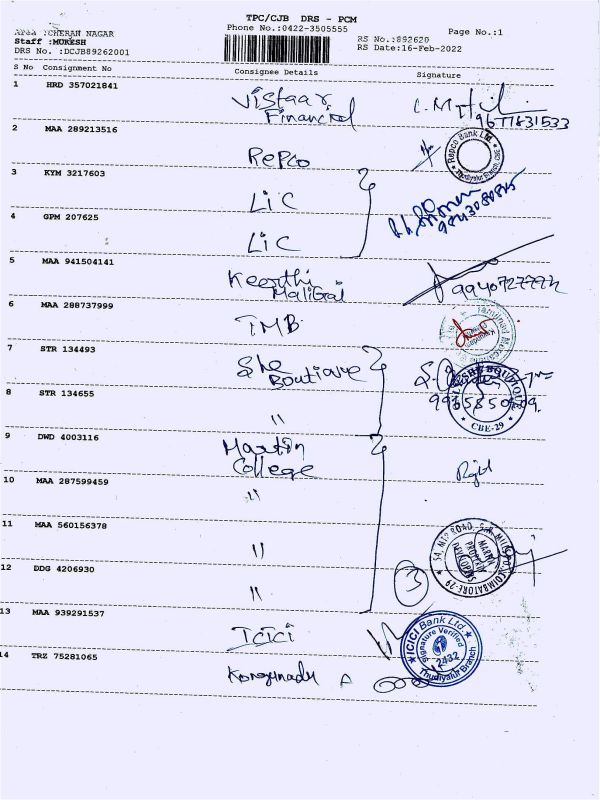 TPC/CJB DRS - PCM
Area :CHERAN NAGAR
Phone No.:0422-3505555
Page No.:1
Staff :MUKESH
RS No.:892620
DRS No. :DCJB89262001
RS Date:16-Feb-2022
S No Consignment No Consignee Details Signature
1 HRD 357021841 Vistaar
Financial
9677831533
2 MAA 289213516 Repco
Repco Bank Ltd.
Thudiyalur Branch, CBE
3 KYM 3217603 LIC
4 GPM 207625 LIC
9843080845
5 MAA 941504141 Keerthi
Maligai
6 MAA 288737999 TMB
7 STR 134493 She
Boutique
8 STR 134655 "
BOUTIQUE
CBE-29
9 DWD 4003116 Martin
College
10 MAA 287599459 "
11 MAA 560156378 "
5A, MTP ROAD,
COIMBATORE-29
MARTIN
PROPERTY
DEVELOPERS
12 DDG 4206930 "
3
13 MAA 939291537 Icici
ICICI Bank Ltd
Signature Verified
2432
Thudiyalur Branch
14 TRZ 75281065 Kongunadu A